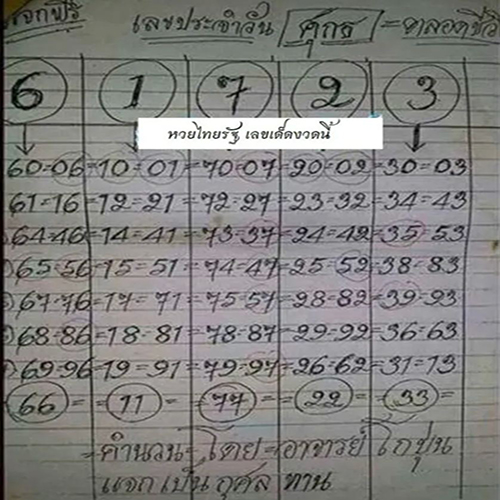 แจกฟรี เลขประจำวัน ศุกร์ = ตลอดชีวิ
6 1 7 2 3
หวยไทยรัฐ เลขเด็ดงวดนี้
60=06=10=01=70=07=20=02=30=03
61=16=12=21=72=27=23=32=34=43
64=46=14=41=73=37=24=42=35=53
65=56=15=51=74=47=25=52=38=83
67=76=17=71=75=57=28=82=39=93
68=86=18=81=78=87=29=92=36=63
69=96=19=91=79=97=26=62=31=13
66 = = 11 = = 77 = = 22 = = 33 =
=คำนวน=โดย=อาจารย์ โกปุ่น
แจกเป็น กุศล ทาน